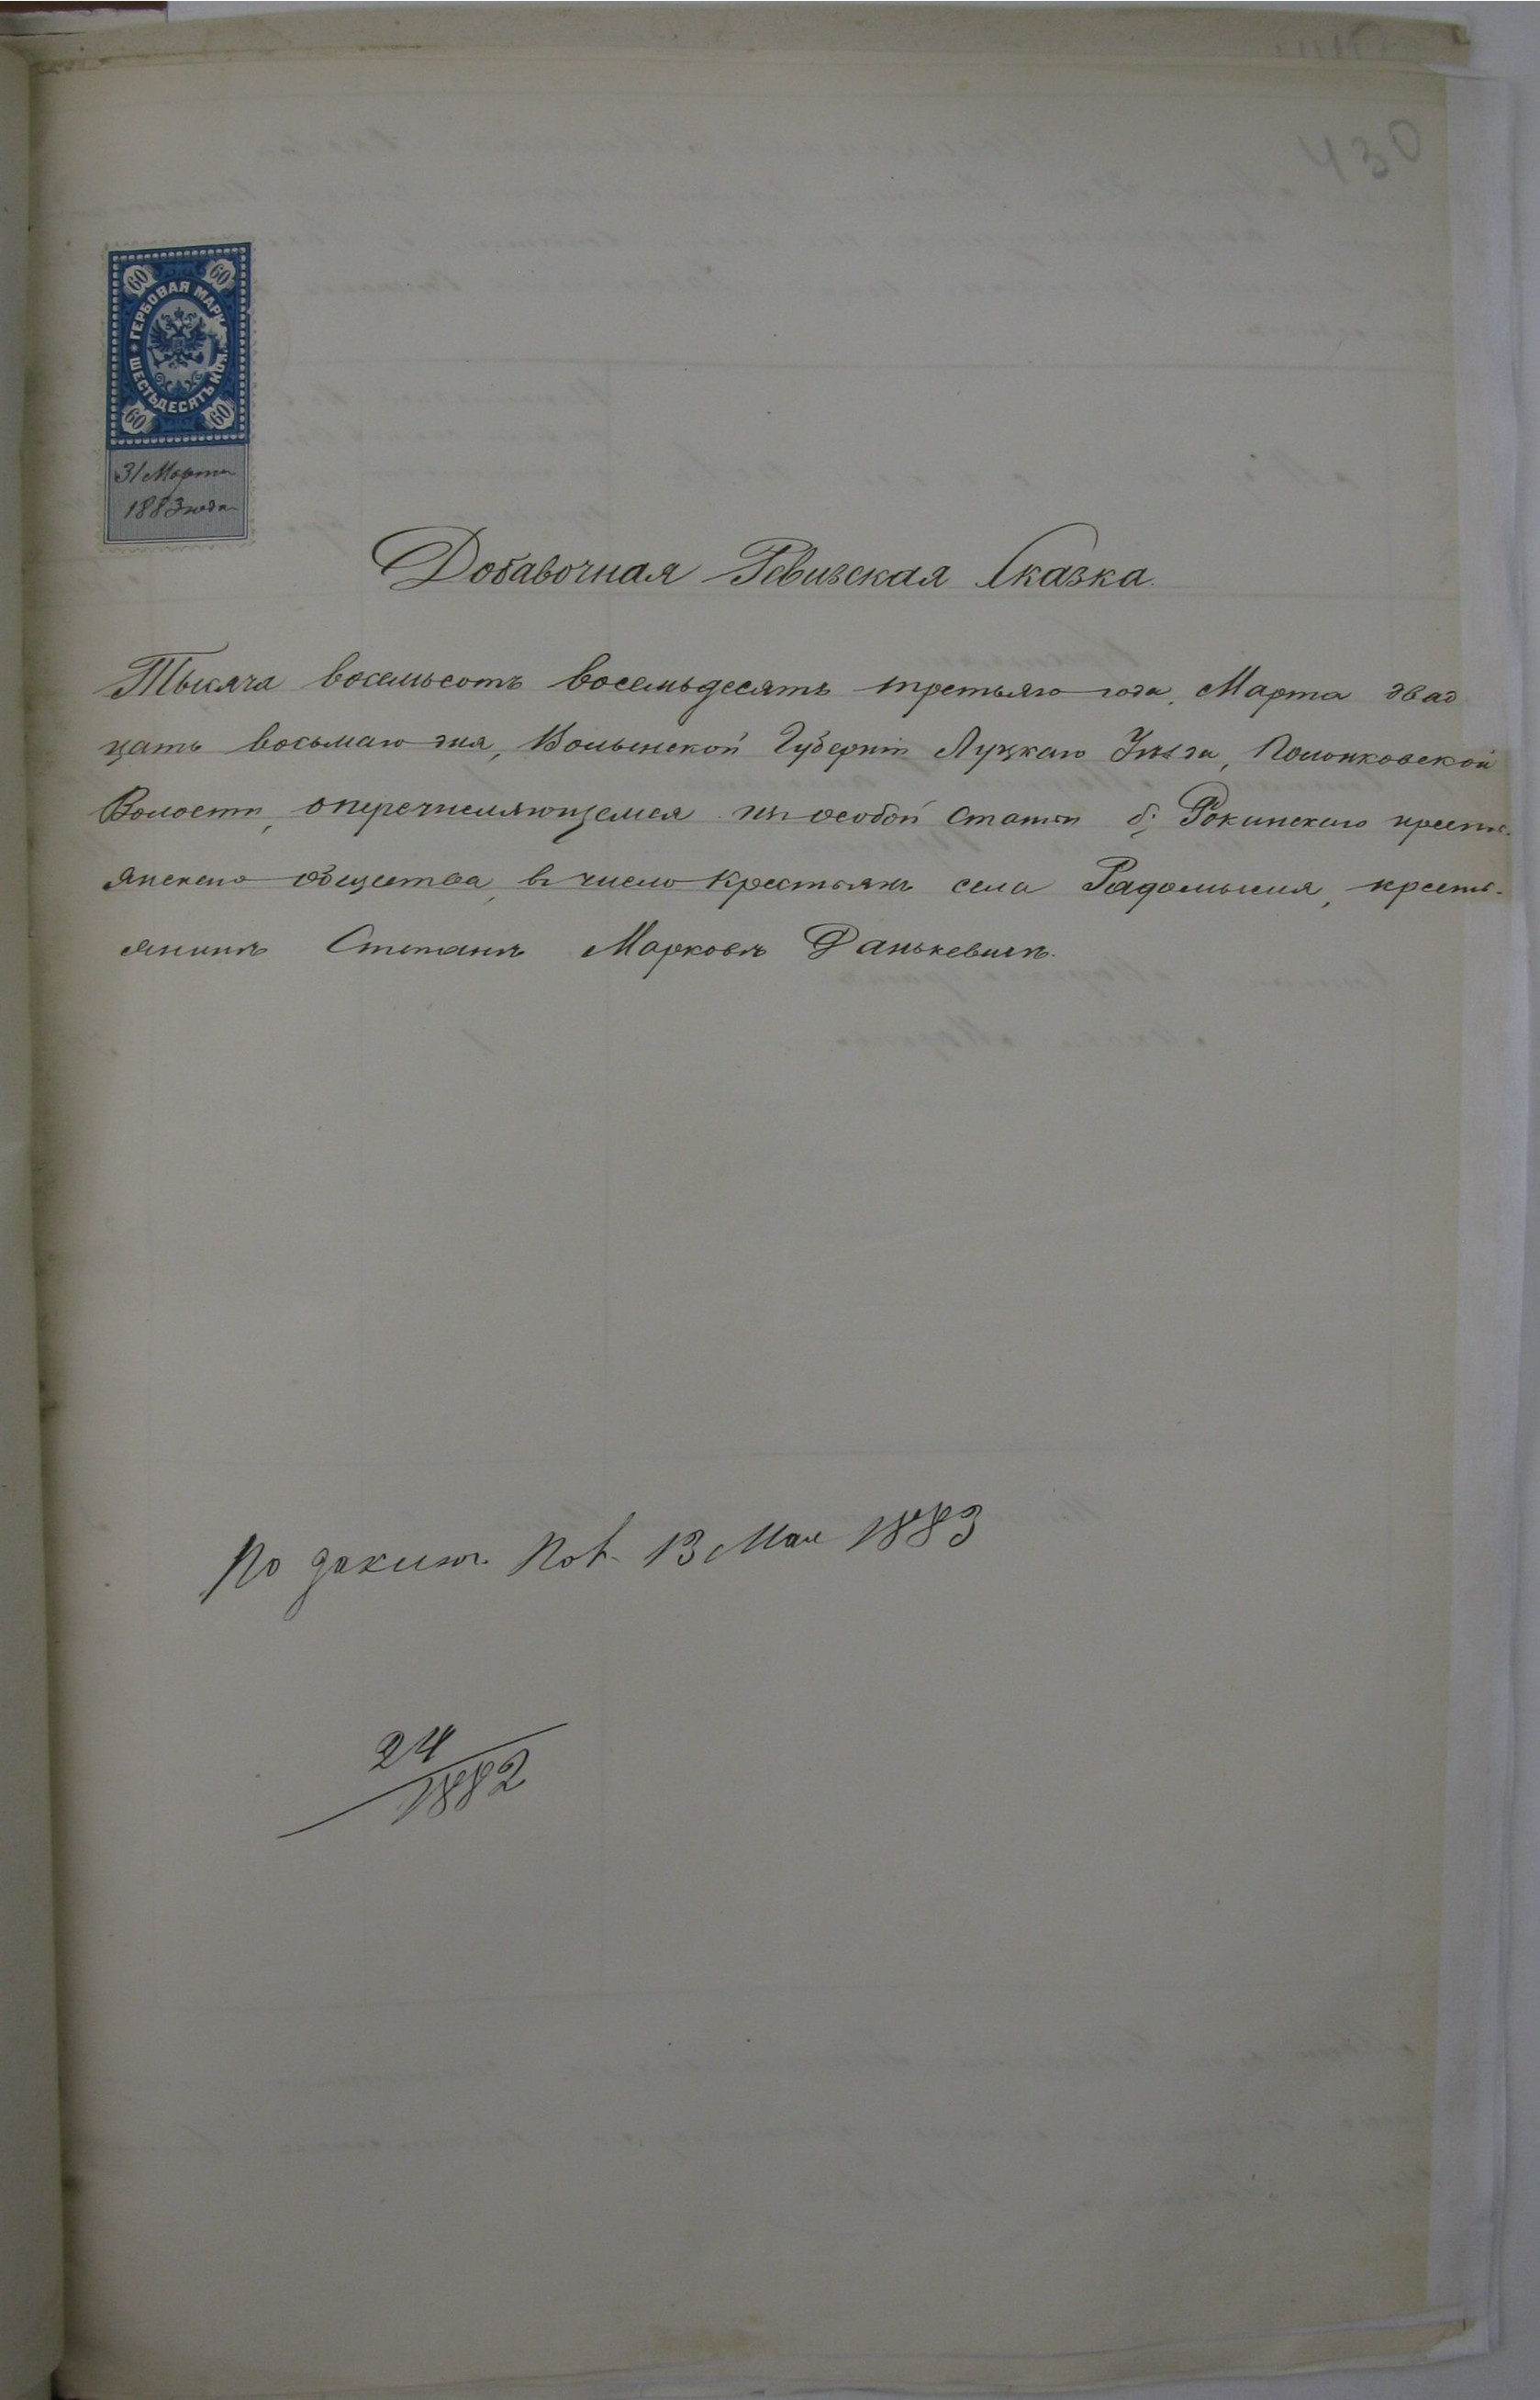 430
60 60
ГЕРБОВАЯ МАРКА
ШЕСТЬДЕСЯТЪ КОП.
60 60
31 Марта
1883 года
Добавочная Ревизская Сказка.
Тысяча восемьсотъ восемьдесятъ третьяго года, Марта двад
цать восьмаго дня, Волынской Губерніи Луцкаго Уѣзда, Полонковской
Волости, о перечисляющемся изъ особой статьи б; Рокинскаго кресть-
янскаго общества, въ число крестьянъ села Радомысля, кресть-
янинѣ Степанъ Марковъ Данькевичъ.
По 13 Мая 1883
24
1882